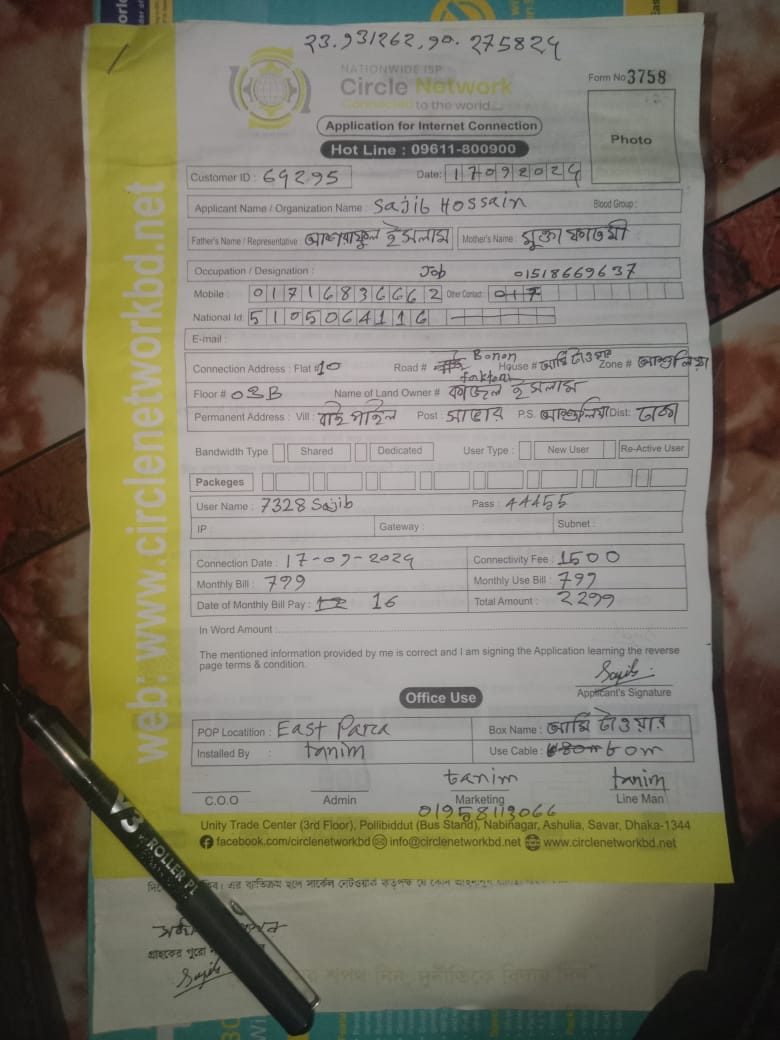 23.931262,90.275824
NATIONWIDE ISP
Circle Network
Connected to the world...
Form No 3758
Application for Internet Connection
Hot Line : 09611-800900
Photo
Customer ID : 69295 Date: 17092024
Applicant Name / Organization Name : Sajib Hossain Blood Group :
Father's Name / Representative : আশরাফুল ইসলাম Mother's Name : মুক্তা ফাতেমী
Occupation / Designation : Job 01518669637
Mobile : 01716836662 Other Contact : 017
National Id: 5105064116
E-mail :
Connection Address : Flat # 10 Road # Bonon House # আর্মি টাওয়ার Zone # আশুলিয়া
Floor # 03B Name of Land Owner # কাজল ইসলাম
Permanent Address : Vill : বাইপাইল Post : সাভার P.S. আশুলিয়া Dist: ঢাকা
Bandwidth Type Shared Dedicated User Type : New User Re-Active User
Packeges
User Name : 7328 Sajib Pass : 44455
IP : Gateway : Subnet :
Connection Date : 17-09-2024 Connectivity Fee : 1500
Monthly Bill : 799 Monthly Use Bill : 799
Date of Monthly Bill Pay : 16 Total Amount : 2299
In Word Amount :
The mentioned information provided by me is correct and I am signing the Application learning the reverse
page terms & condition.
Sajib
Applicant's Signature
Office Use
POP Locatition : East Para Box Name : আর্মি টাওয়ার
Installed By : tanim Use Cable : 60m
tanim tanim
C.O.O Admin Marketing Line Man
01958113066
Unity Trade Center (3rd Floor), Pollibiddut (Bus Stand), Nabinagar, Ashulia, Savar, Dhaka-1344
facebook.com/circlenetworkbd info@circlenetworkbd.net www.circlenetworkbd.net
web: www.circlenetworkbd.net
এর ব্যতিক্রম হলে সার্কেল নেটওয়ার্ক কর্তৃপক্ষ
গ্রাহকের পুরো
Sajib
V3 ROLLER